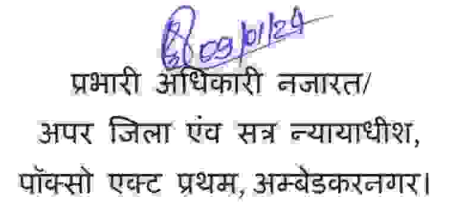 09/01/24
प्रभारी अधिकारी नजारत/
अपर जिला एंव सत्र न्यायाधीश,
पॉक्सो एक्ट प्रथम, अम्बेडकरनगर।